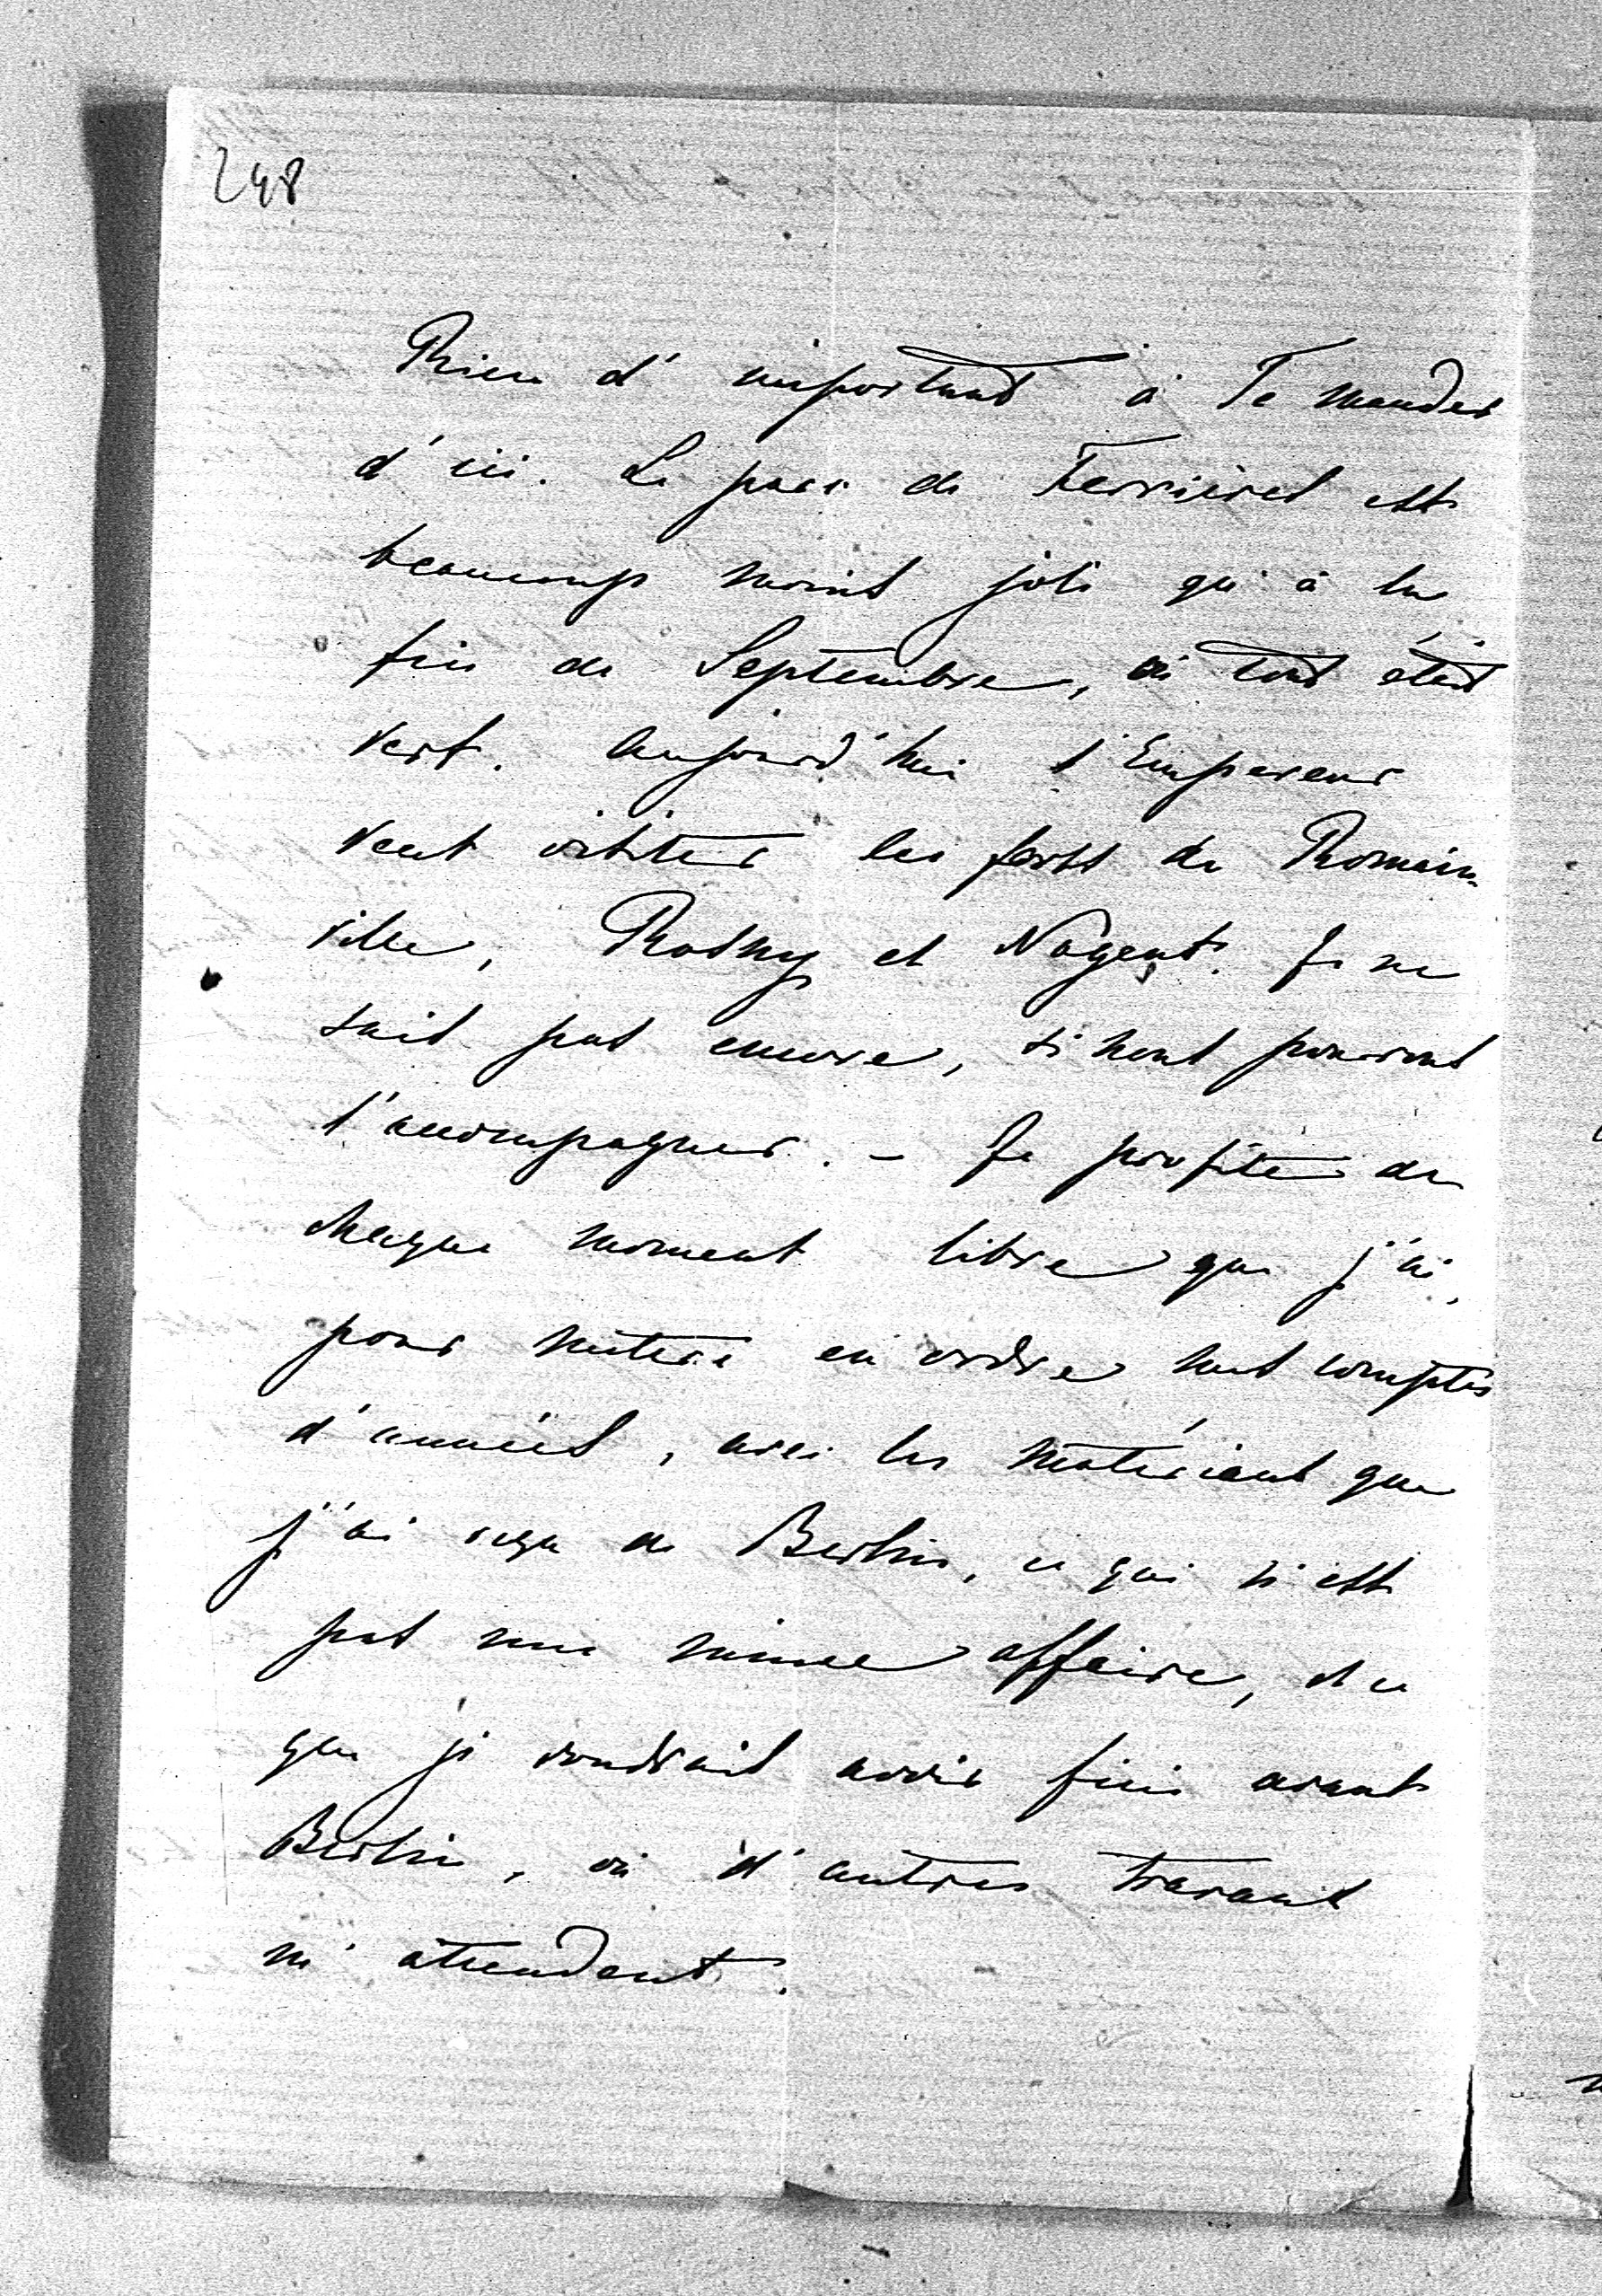 248
Rien d'important à Te mander
d'ici. Le parc de Ferrières est
beaucoup moins joli qu'à la
fin de Septembre, où tout était
vert. Aujourd'hui l'Empereur
veut visiter les forts de Romain-
ville, Rosny et Nogent. Je ne
sais pas encore, si nous pourrons
l'accompagner. – Je profite de
chaque moment libre que j'ai,
pour mettre en ordre nos comptes
d'années, avec les matériaux que
j'ai reçu de Berlin, ce qui n'est
pas une mince affaire, et ce
que je voudrais avoir fini avant
Berlin, où d'autres travaux
m'attendent.